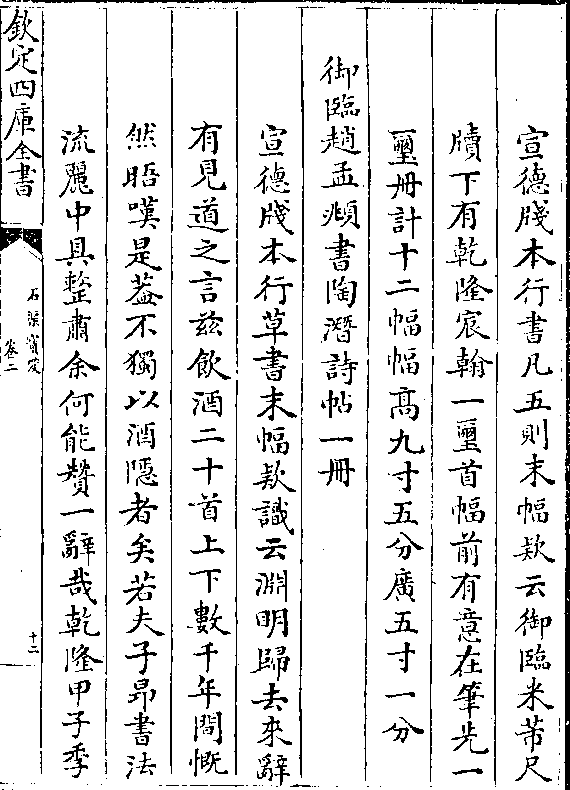 宣德牋本行書凡五則末幅欵云御臨米芾尺
牘下有乾隆宸翰一璽首幅前有意在筆先一
璽冊計十二幅幅髙九寸五分廣五寸一分
御臨趙孟頫書陶潛詩帖一冊
宣德牋本行草書末幅欵識云淵明歸去來辭
有見道之言兹飲酒二十首上下數千年間慨
然晤嘆是葢不獨以酒隱者矣若夫子昻書法
流麗中具整肅余何能贊一辭哉乾隆甲子季
欽定四庫全書
石渠寳笈
卷二
十二